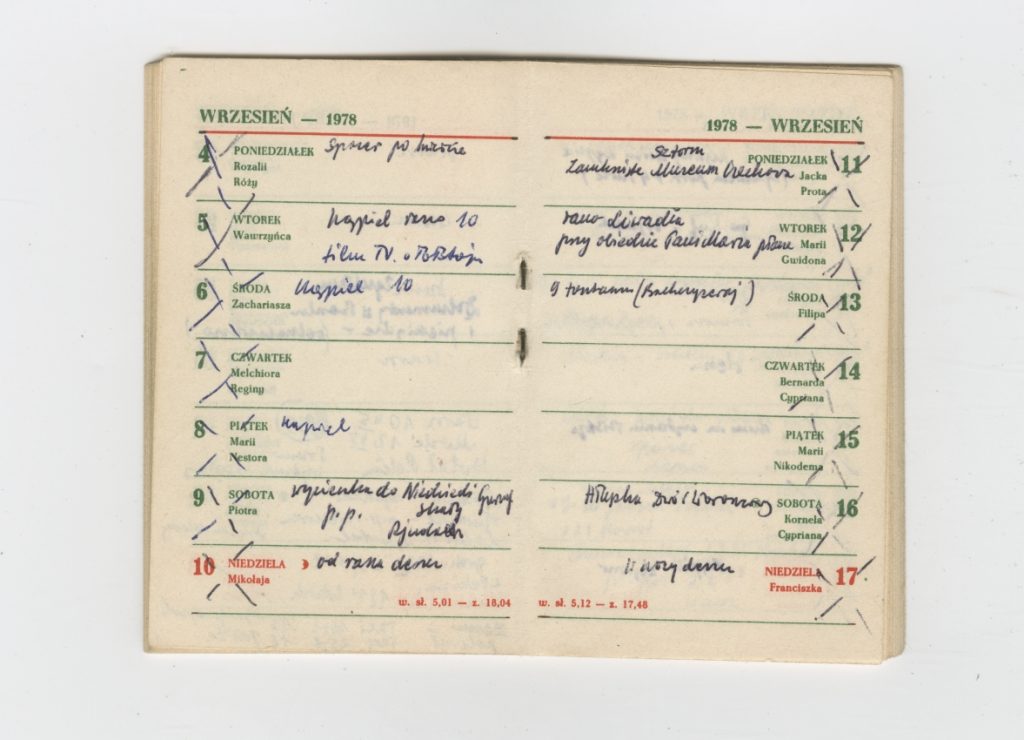 WRZESIEŃ — 1978
4 PONIEDZIAŁEK Spacer po
Rozalii
Róży
5 WTOREK Kąpiel rano 10
Wawrzyńca
film TV. o
6 ŚRODA Kąpiel 10
Zachariasza
7 CZWARTEK
Melchiora
Reginy
8 PIĄTEK Kąpiel
Marii
Nestora
9 SOBOTA wycieczka do Niedźwiedź Góra
Piotra p.p. skały
10 NIEDZIELA od rana deszcz
Mikołaja
w. sł. 5,01 — z. 18,04
1978 — WRZESIEŃ
Sztorm
Zamknięte Muzeum Czechowa PONIEDZIAŁEK 11
Jacka
Prota
rano Liwadia WTOREK 12
przy obiedzie Pani Maria Marii
Gwidona
9 fontann (Bachczysaraj) ŚRODA 13
Filipa
CZWARTEK 14
Bernarda
Cypriana
PIĄTEK 15
Marii
Nikodema
Ałupka SOBOTA 16
Kornela
Cypriana
w nocy deszcz NIEDZIELA 17
Franciszka
w. sł. 5,12 — z. 17,48